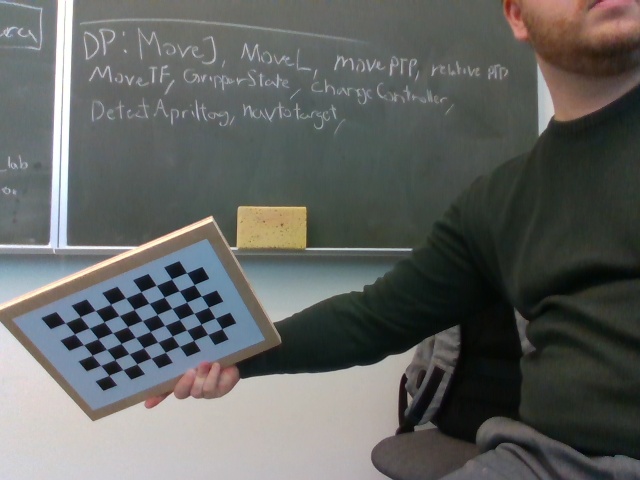 area
DP: MoveJ, MoveL, movePTP, relative PTP
MoveTF, GripperState, ChangeController,
DetectApriltag, navtotarget,
_lab